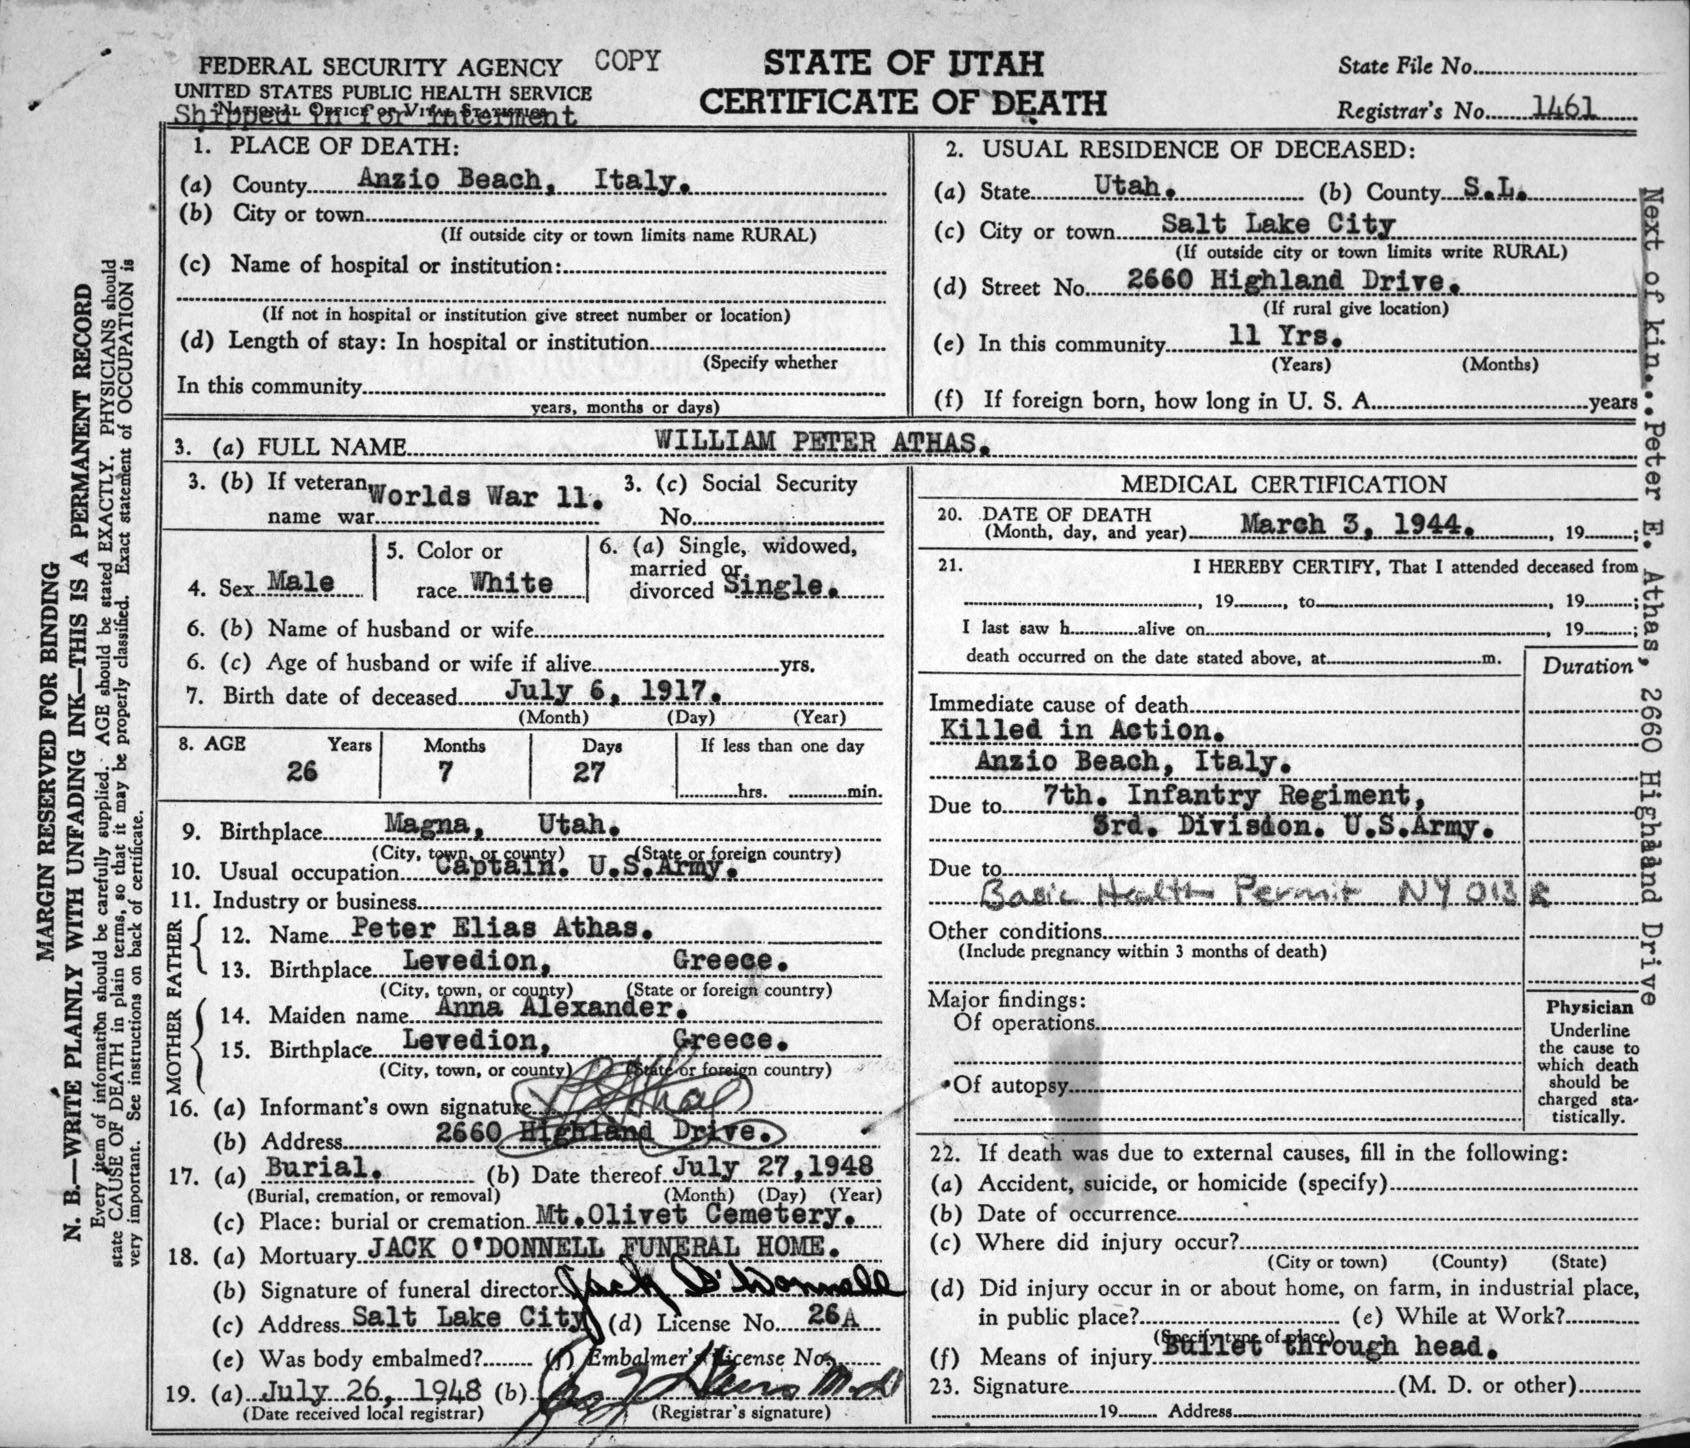 FEDERAL SECURITY AGENCY COPY
UNITED STATES PUBLIC HEALTH SERVICE
NATIONAL OFFICE OF VITAL STATISTICS
Shipped in for interment
STATE OF UTAH
CERTIFICATE OF DEATH
State File No.
Registrar's No. 1461
1. PLACE OF DEATH:
(a) County Anzio Beach, Italy.
(b) City or town
(If outside city or town limits name RURAL)
(c) Name of hospital or institution:
(If not in hospital or institution give street number or location)
(d) Length of stay: In hospital or institution
(Specify whether
In this community
years, months or days)
2. USUAL RESIDENCE OF DECEASED:
(a) State Utah. (b) County S.L.
(c) City or town Salt Lake City
(If outside city or town limits write RURAL)
(d) Street No. 2660 Highland Drive.
(If rural give location)
(e) In this community 11 Yrs.
(Years) (Months)
(f) If foreign born, how long in U. S. A. years
3. (a) FULL NAME WILLIAM PETER ATHAS.
3. (b) If veteran, Worlds War 11. 3. (c) Social Security
name war No.
4. Sex Male
5. Color or
race White
6. (a) Single, widowed,
married or
divorced Single.
6. (b) Name of husband or wife
6. (c) Age of husband or wife if alive yrs.
7. Birth date of deceased July 6, 1917.
(Month) (Day) (Year)
8. AGE Years Months Days If less than one day
26 7 27
hrs. min.
9. Birthplace Magna, Utah.
(City, town, or county) (State or foreign country)
10. Usual occupation Captain. U.S.Army.
11. Industry or business
FATHER
12. Name Peter Elias Athas.
13. Birthplace Levedion, Greece.
(City, town, or county) (State or foreign country)
MOTHER
14. Maiden name Anna Alexander.
15. Birthplace Levedion, Greece.
(City, town, or county) (State or foreign country)
16. (a) Informant's own signature
(b) Address 2660 Highland Drive.
17. (a) Burial. (b) Date thereof July 27, 1948
(Burial, cremation, or removal) (Month) (Day) (Year)
(c) Place: burial or cremation Mt.Olivet Cemetery.
18. (a) Mortuary JACK O'DONNELL FUNERAL HOME.
(b) Signature of funeral director Jack O'Donnell
(c) Address Salt Lake City (d) License No. 26A
(e) Was body embalmed? (f) Embalmer's License No.
19. (a) July 26, 1948 (b) M.D.
(Date received local registrar) (Registrar's signature)
MEDICAL CERTIFICATION
20. DATE OF DEATH
(Month, day, and year) March 3, 1944. , 19 ;
21. I HEREBY CERTIFY, That I attended deceased from
, 19 , to , 19 ;
I last saw h alive on , 19 ;
death occurred on the date stated above, at m.
Duration
Immediate cause of death
Killed in Action.
Anzio Beach, Italy.
Due to 7th. Infantry Regiment,
3rd. Division. U.S.Army.
Due to
Basic Health Permit NY 013 R
Other conditions
(Include pregnancy within 3 months of death)
Major findings:
Of operations
Of autopsy
Physician
Underline
the cause to
which death
should be
charged sta-
tistically.
22. If death was due to external causes, fill in the following:
(a) Accident, suicide, or homicide (specify)
(b) Date of occurrence
(c) Where did injury occur?
(City or town) (County) (State)
(d) Did injury occur in or about home, on farm, in industrial place,
in public place? (e) While at Work?
(Specify type of place)
(f) Means of injury Bullet through head.
23. Signature (M. D. or other)
19 Address
Next of kin...Peter E. Athas, 2660 Highland Drive
MARGIN RESERVED FOR BINDING
N. B.—WRITE PLAINLY WITH UNFADING INK—THIS IS A PERMANENT RECORD
Every item of information should be carefully supplied. AGE should be stated EXACTLY. PHYSICIANS should
state CAUSE OF DEATH in plain terms, so that it may be properly classified. Exact statement of OCCUPATION is
very important. See instructions on back of certificate.